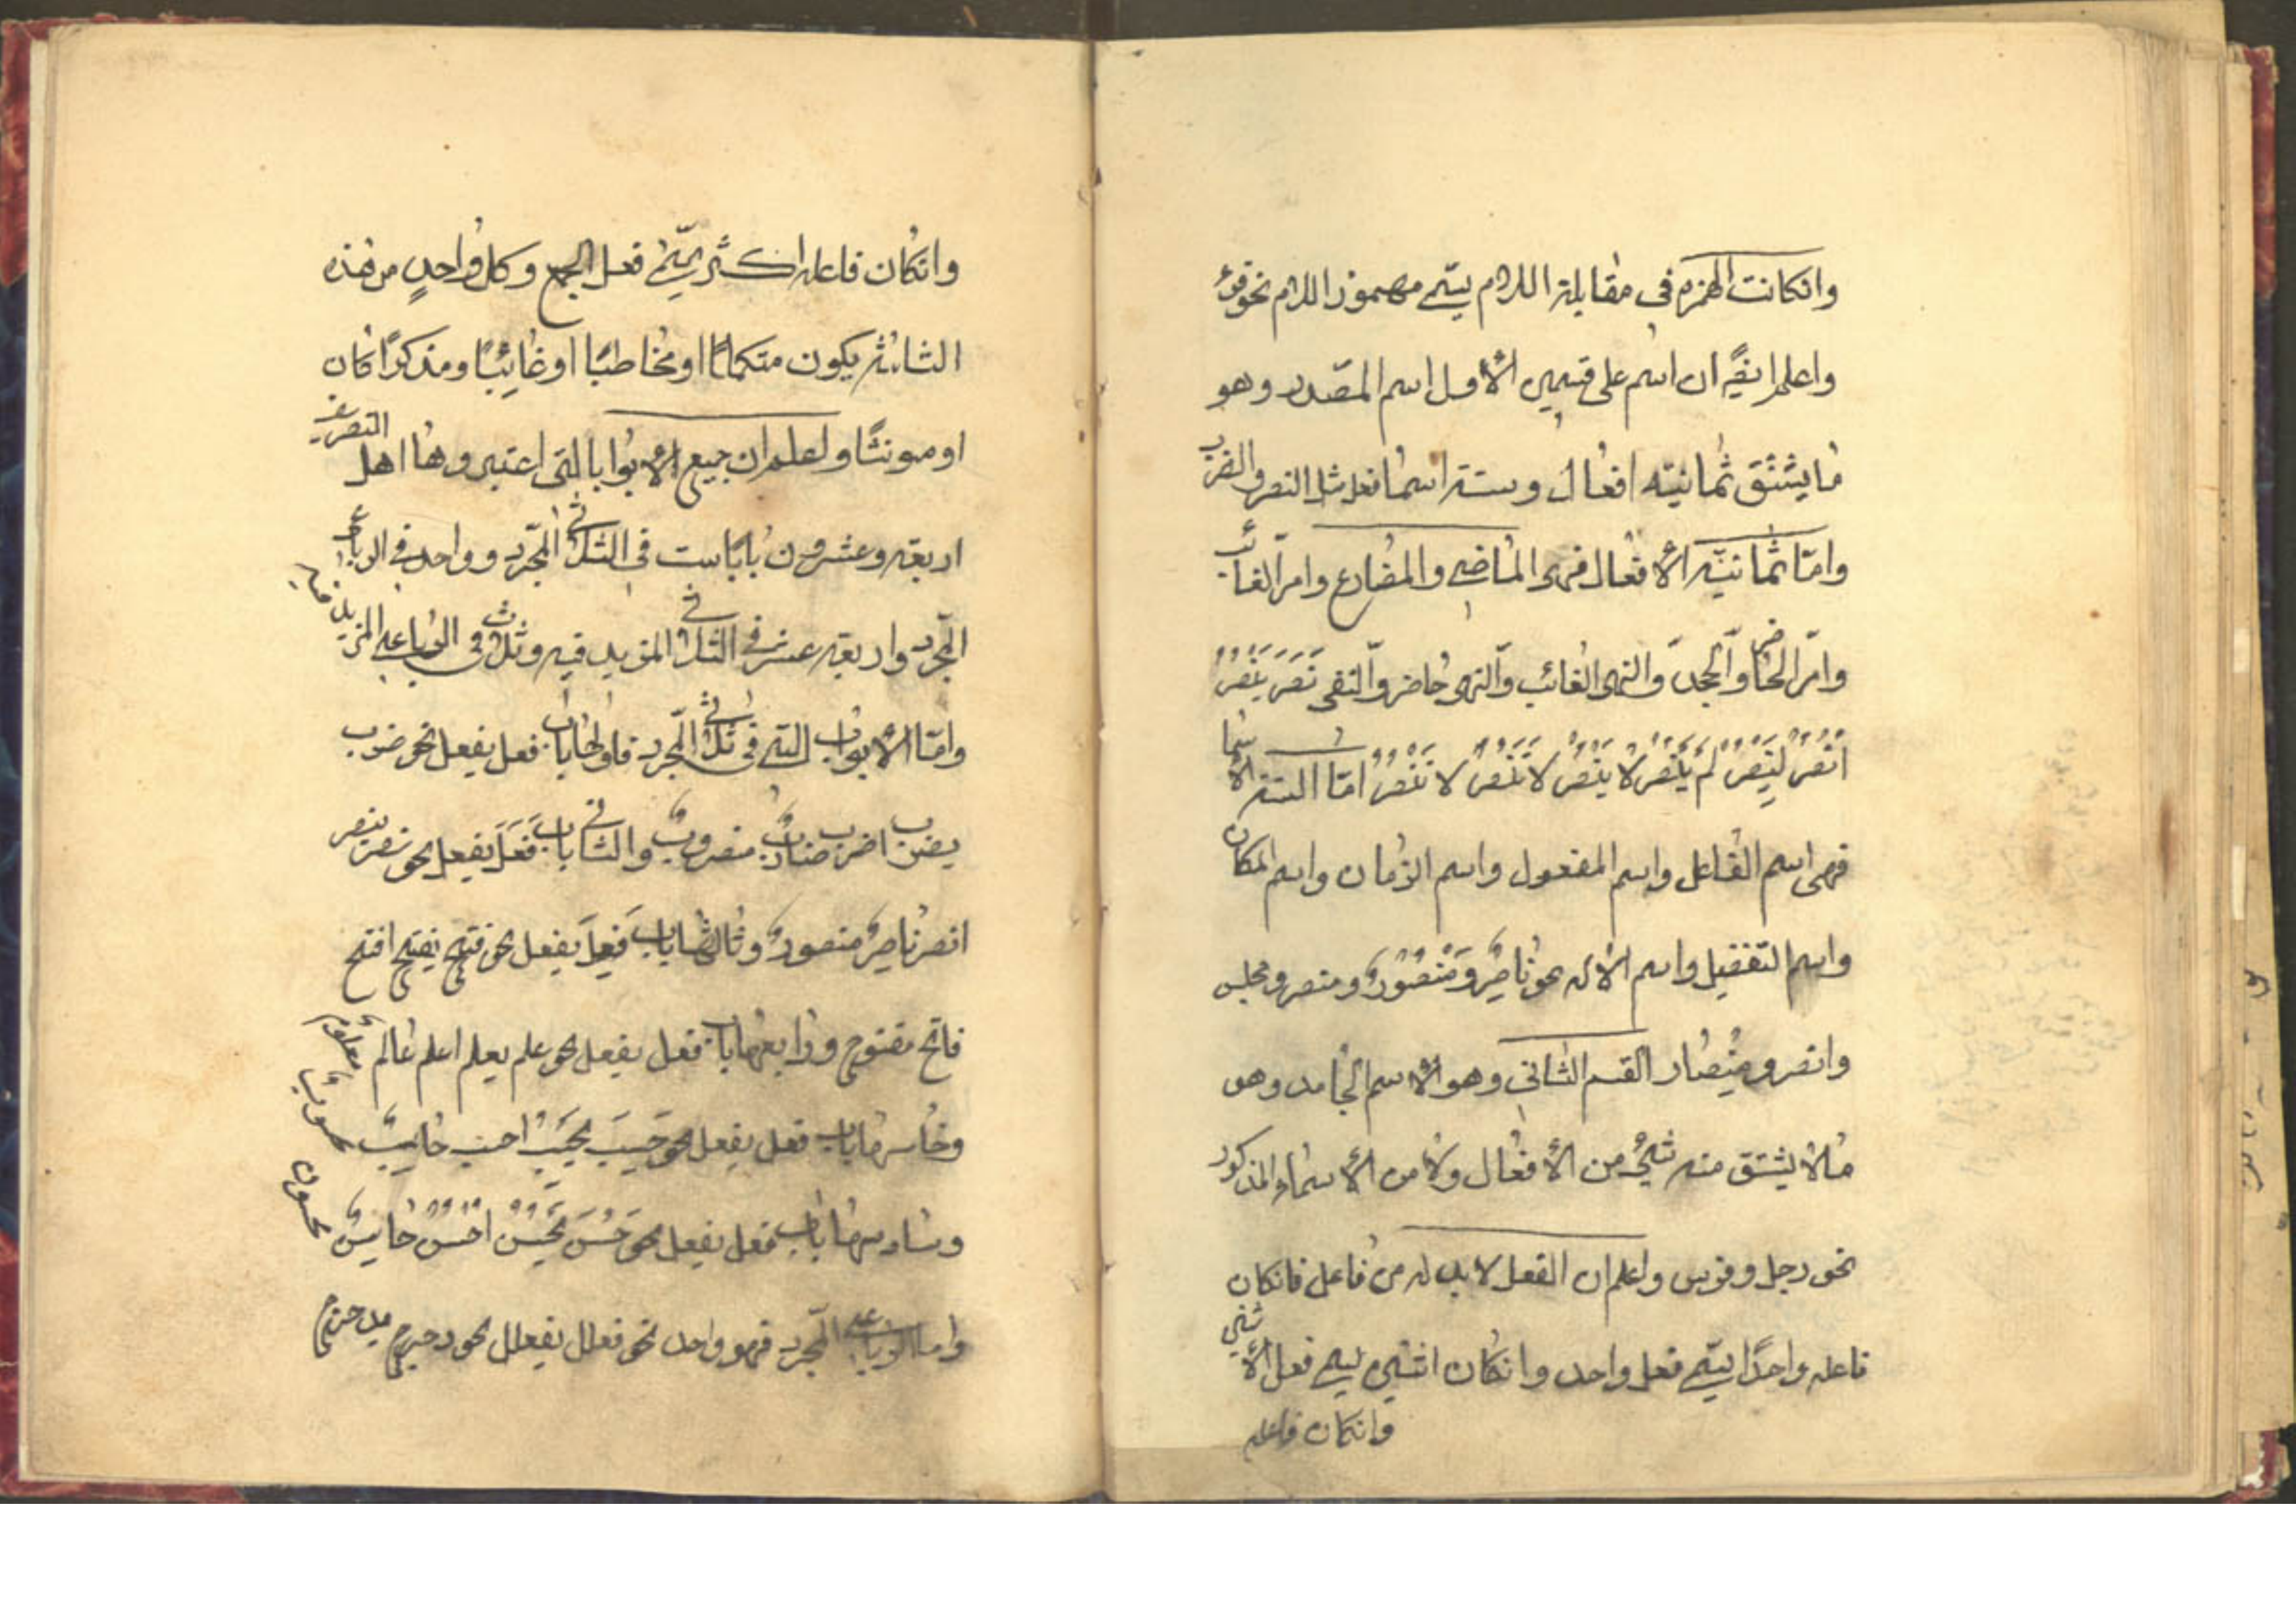 وانكانت الهمزه في مقابلة اللام يسّمى مهموز اللام نحو قرء
واعلم ايضًا ان اسم على قسمين الأول اسم المصدر وهو
ما يشتق ثمانيّه افعال وستة اسما فعل مثل النصر والضرب
وامّا ثمانيّه الأفعال فهى الماضي والمضارع وامر الغائب
وامّر الحاضر والجحد والنهى الغائب والنهى حاضر والنفى نَصَرَ يَنْصُرُ
انْصُرْ لِيَنْصُرْ لَمْ يَنْصُرْ لا يَنْصُرْ لا تَنْصُرْ لا يَنْصُرُ امّا الستة الأسما
فهى اسم الفاعل واسم المفعول واسم الزمان واسم المكان
واسم التفضيل واسم الأله نحو ناصِرٌ ومَنْصُورٌ ومنصر ومجلس
وانصر ومِنْصار القسم الثانى وهو الاسم الجامد وهو
مالا يشتق منه شئ من الأفعال ولا من الأسماء المذكور
نحو رجل وفرس واعلم ان الفعل لابد له من فاعل فانكان
فاعله واحدًا يسّمى فعل واحد وانكان اثنين يسمى فعل الأثنى
وانكان فاعله
وانكان فاعله اكثر يسّمى فعل الجمع وكل واحدٍ من هذه
الثلثة يكون متكلمًا او مخاطبًا او غائبًا ومذكرًا كان
او مونثًا ولعلم ان جميع الأبواب التى اعتبروها اهل التصريف
اربعة وعشرون بابًا ست فى الثلاثى المجّرد وواحد فى الرباعى
المجّرد واربعة عشر فى الثلاثى المزيد فيه وثلث فى الرباعى المزيد فيه
وامّا الأبواب التى فى ثلاثى المجّرد فاولها باب فعل يفعل نحو ضرب
يضرب اضرب ضاربٌ مضروبٌ والثانى باب فَعَلَ يفعل نحو نصر ينصر
انصر ناصِرٌ منصورٌ وثالثها باب فَعِلَ يفعل نحو فتح يفتح افتح
فاتح مفتوح ورابعها باب فعل يفعل نحو علم يعلم اعلم عالم معلوم
وخامسها باب فعل يفعل نحو حَسِبَ يَحْسِبُ احسب حاسِبٌ محسوبٌ
وسادسها باب فعل يفعل نحو حَسُنَ يَحْسُنُ احْسُنْ حاسِنٌ محسون
واما الرباعى المجّرد فهو واحد نحو فعلل يفعلل نحو دحرج يدحرج